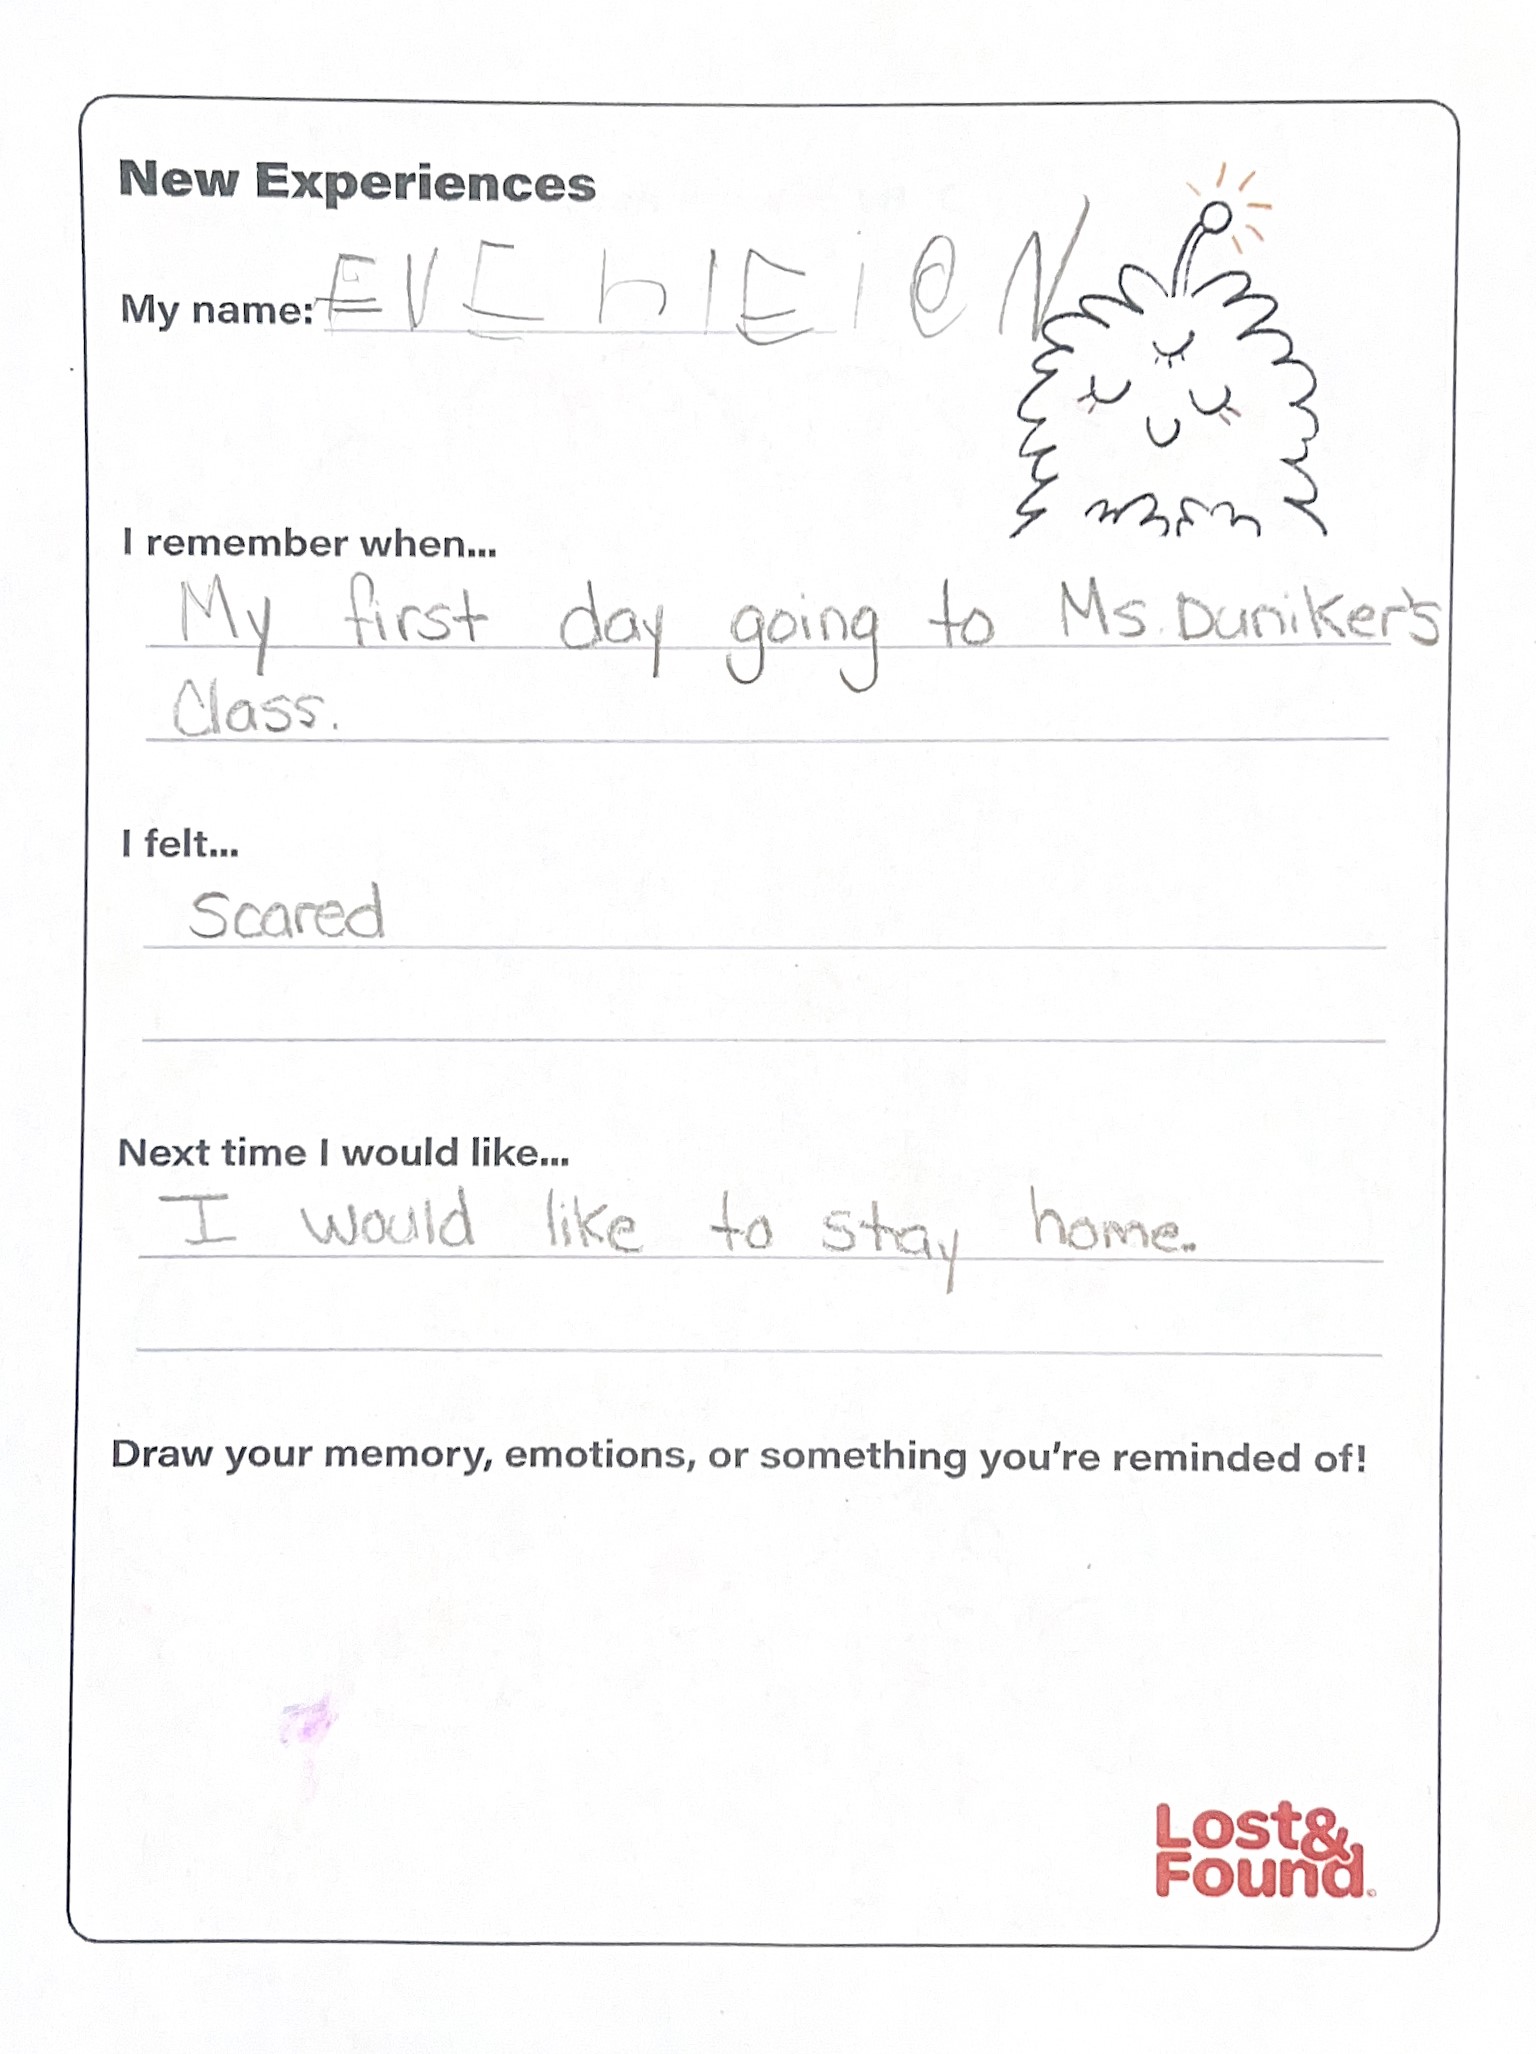 New Experiences
My name: EVEhIEION
I remember when...
My first day going to Ms. Duniker's
Class.
I felt...
Scared
Next time I would like...
I would like to stay home.
Draw your memory, emotions, or something you're reminded of!
Lost&
Found